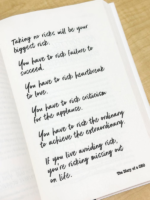 Taking no risks will be your
biggest risk.
You have to risk failure to
succeed.
You have to risk heartbreak
to love.
You have to risk criticism
for the applause.
You have to risk the ordinary
to achieve the extraordinary.
If you live avoiding risk,
you're risking missing out
on life.
The Story of a